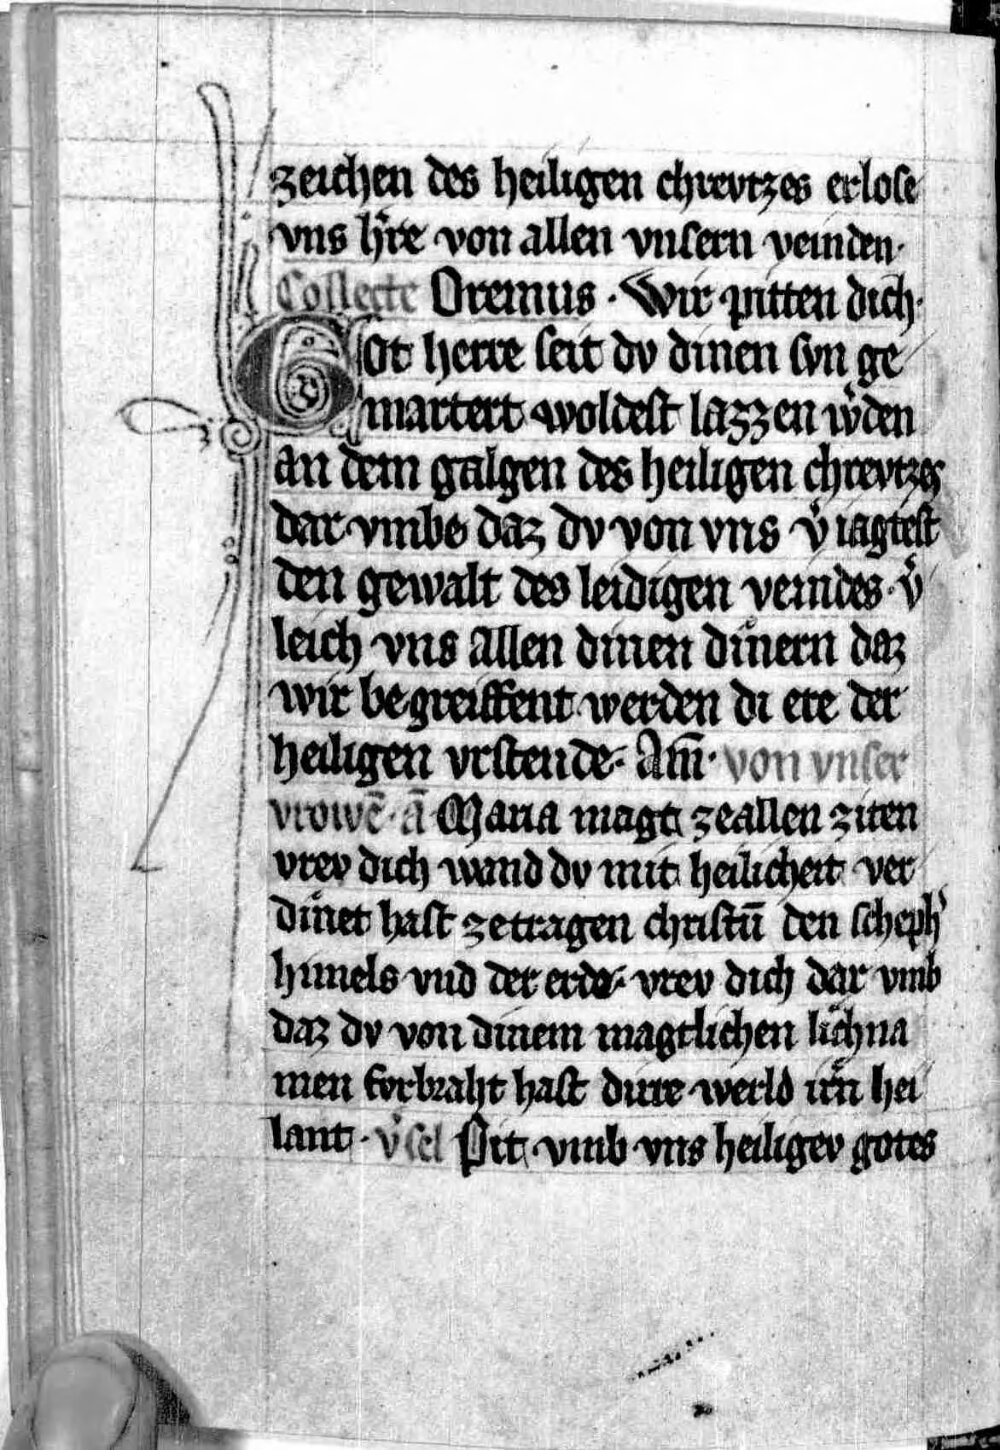 zeichen des heiligen chrevtzes erlose
vns hr̄e von allen vnsern veinden·
Collecte Oremus · Wir pitten dich·
Got herre seit dv dinen svn ge
martert woldest lazzen w̓den
an dem galgen des heiligen chrevtzes
dar vmbe daz dv von vns v̓ iagtest
den gewalt des leidigen veindes· v̓
leich vns allen dinen dinͤern daz
wir begreiffent werden di ere der
heiligen vrstende· Am̄· von vnser
vrowē· ā Maria magt zeallen ziten
vrev dich wand dv mit heilicheit ver
dinͤet hast zetragen christū den scheph̓
himels vnd der erde· vrev dich dar vmb
daz dv von dinem magtlichen lichna
men forbraht hast dirre werld irn̄ hei
lant · v̓sel Pit vmb vns heiligev gotes